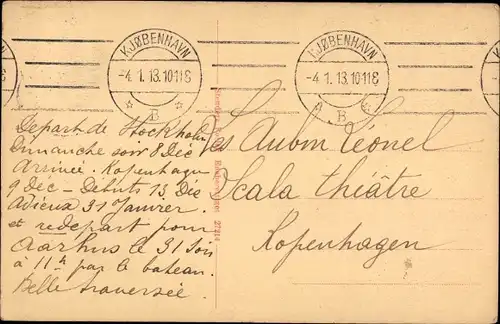 KJØBENHAVN
-4.1.13.10-11 F
B
KJØBENHAVN
-4.1.13.10-11 F
B
Depart de Stockholm
Dimanche soir 8 Déc
Arrivée. Kopenhague
9 Déc - Débuts 13 Déc
Adieux 31 Janvier.
et redepart pour
Aarhus le 31 Soir
à 11h par le bateau.
Belle traversée.
Les Aubin Léonel
Scala théâtre
Kopenhagen